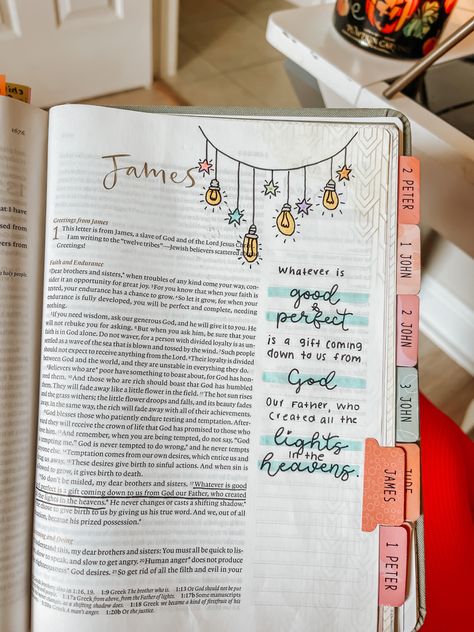 James
Greetings from James
1 This letter is from James, a slave of God and of the Lord Jesus C
I am writing to the "twelve tribes"—Jewish believers scattered
Greetings!
Faith and Endurance
2 Dear brothers and sisters, when troubles of any kind come your way, con-
sider it an opportunity for great joy. 3 For you know that when your faith is
tested, your endurance has a chance to grow. 4 So let it grow, for when your
endurance is fully developed, you will be perfect and complete, needing
nothing.
5 If you need wisdom, ask our generous God, and he will give it to you. He
will not rebuke you for asking. 6 But when you ask him, be sure that your
faith is in God alone. Do not waver, for a person with divided loyalty is as un-
settled as a wave of the sea that is blown and tossed by the wind. 7 Such people
should not expect to receive anything from the Lord. 8 Their loyalty is divided
between God and the world, and they are unstable in everything they do.
9 Believers who are poor have something to boast about, for God has hon-
ored them. 10 And those who are rich should boast that God has humbled
them. They will fade away like a little flower in the field. 11 The hot sun rises
and the grass withers; the little flower droops and falls, and its beauty fades
away. In the same way, the rich will fade away with all of their achievements.
12 God blesses those who patiently endure testing and temptation. After-
ward they will receive the crown of life that God has promised to those who
love him. 13 And remember, when you are being tempted, do not say, "God
is tempting me." God is never tempted to do wrong, and he never tempts
anyone else. 14 Temptation comes from our own desires, which entice us and
drag us away. 15 These desires give birth to sinful actions. And when sin is
allowed to grow, it gives birth to death.
16 So don't be misled, my dear brothers and sisters. 17 Whatever is good
perfect is a gift coming down to us from God our Father, who created
the lights in the heavens. He never changes or casts a shifting shadow.
He chose to give birth to us by giving us his true word. And we, out of all
creation, became his prized possession.
Listening and Doing
Understand this, my dear brothers and sisters: You must all be quick to lis-
ten, slow to speak, and slow to get angry. 20 Human anger does not produce
the righteousness God desires. 21 So get rid of all the filth and evil in your
Whatever is
good
&
perfect
is a gift coming
down to us from
God
Our Father, who
created all the
lights
in the
heavens.
2 PETER
1 JOHN
2 JOHN
3 JOHN
JUDE
JAMES
1 PETER